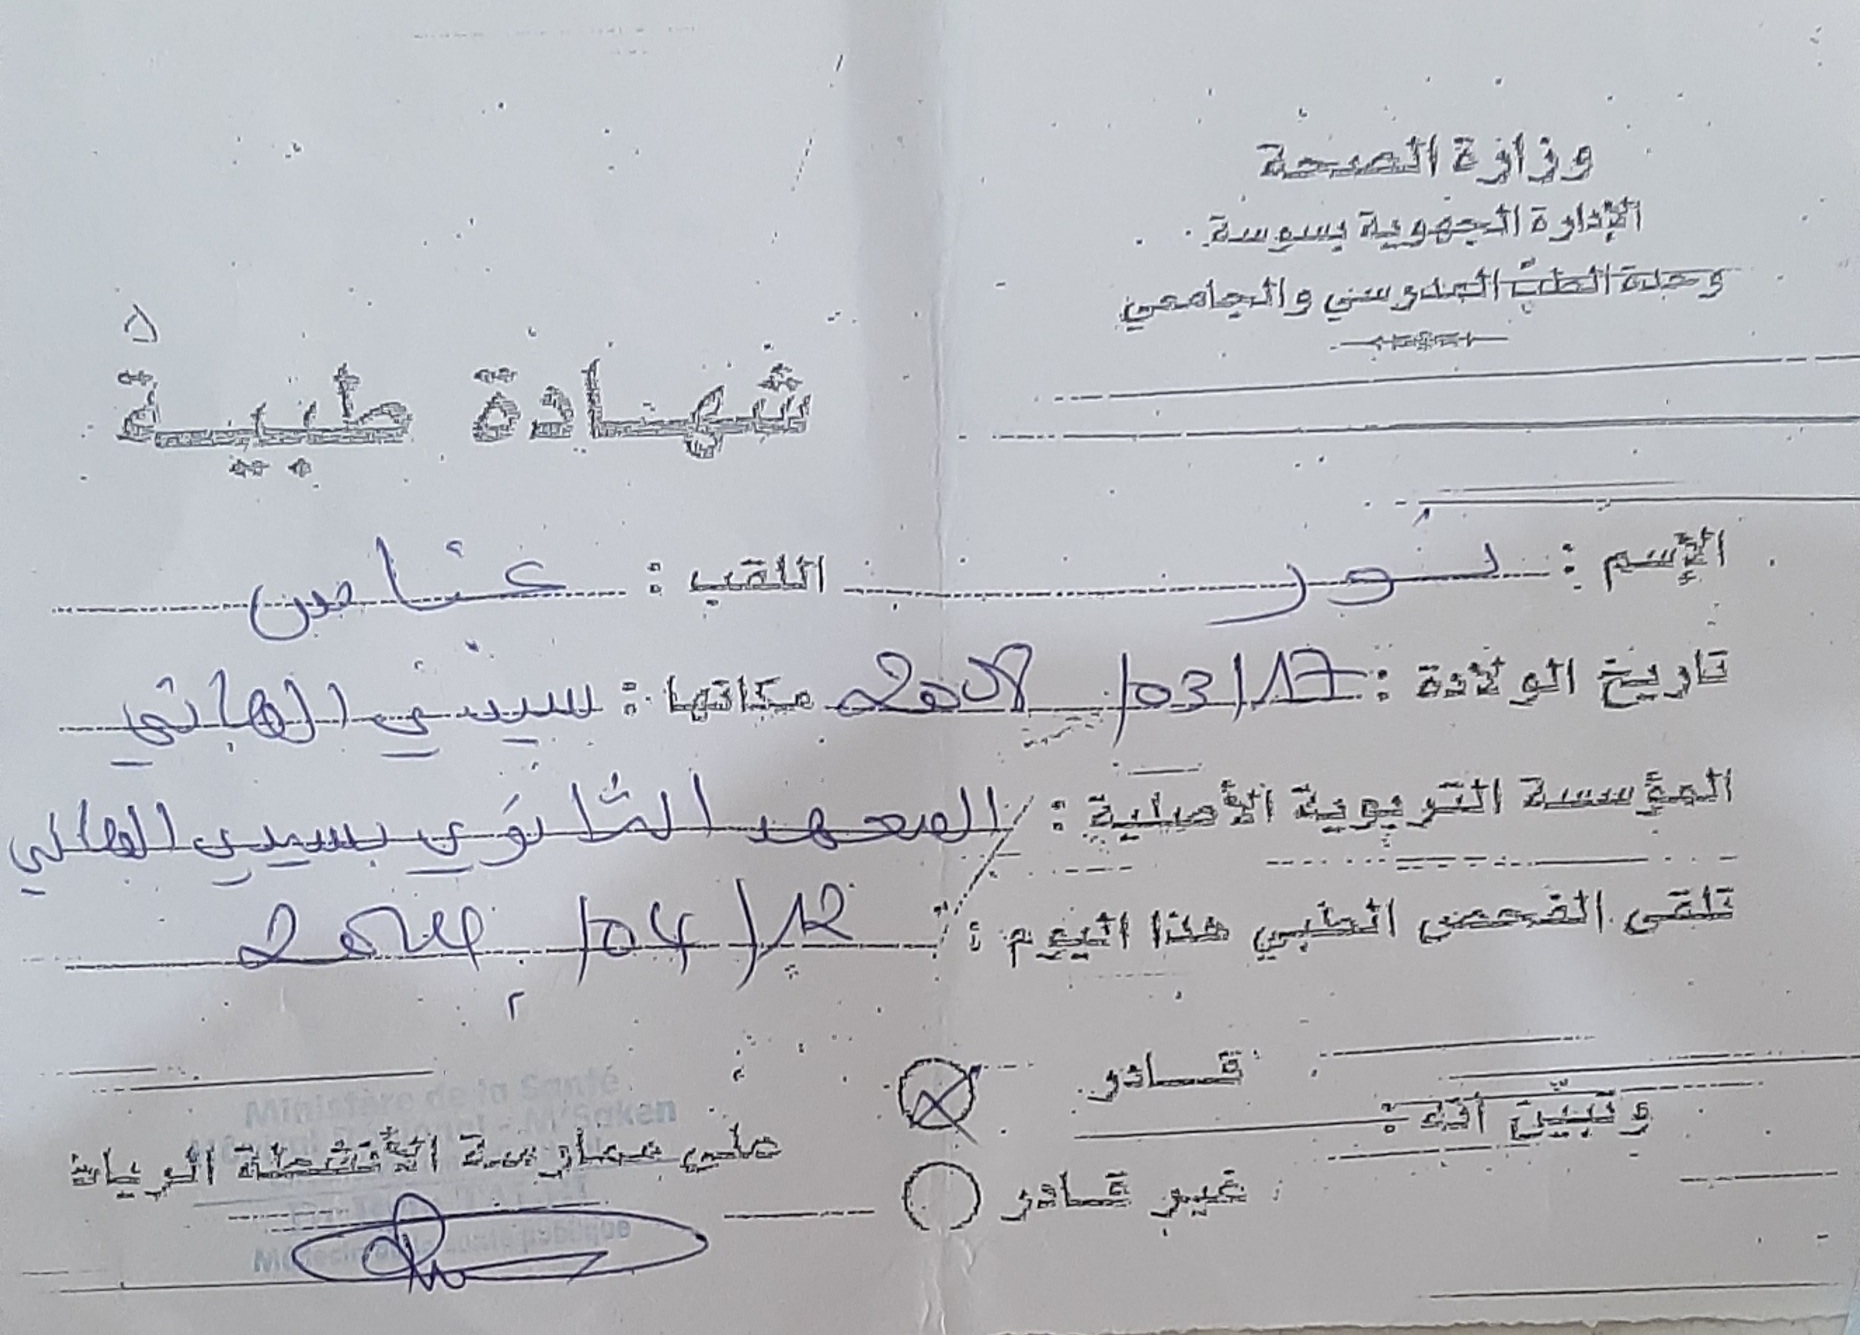 وزارة الصحة
الإدارة الجهوية بسوسة
وحدة الطبّ المدرسي والجامعي
شهادة طبية
الإسم : نور اللقب :
تاريخ الولادة : 17/03/2008 مكانها : سيدي الهاني
المؤسسة التربوية الأصلية : المعهد الثانوي بسيدي الهاني
تلقى الفحص الطبي هذا اليوم : 12/04/2024
وتبيّن أنّه : قادر
غير قادر
على ممارسة الأنشطة الرياضة
Ministère de la Santé
M'Saken
Médecin de santé publique